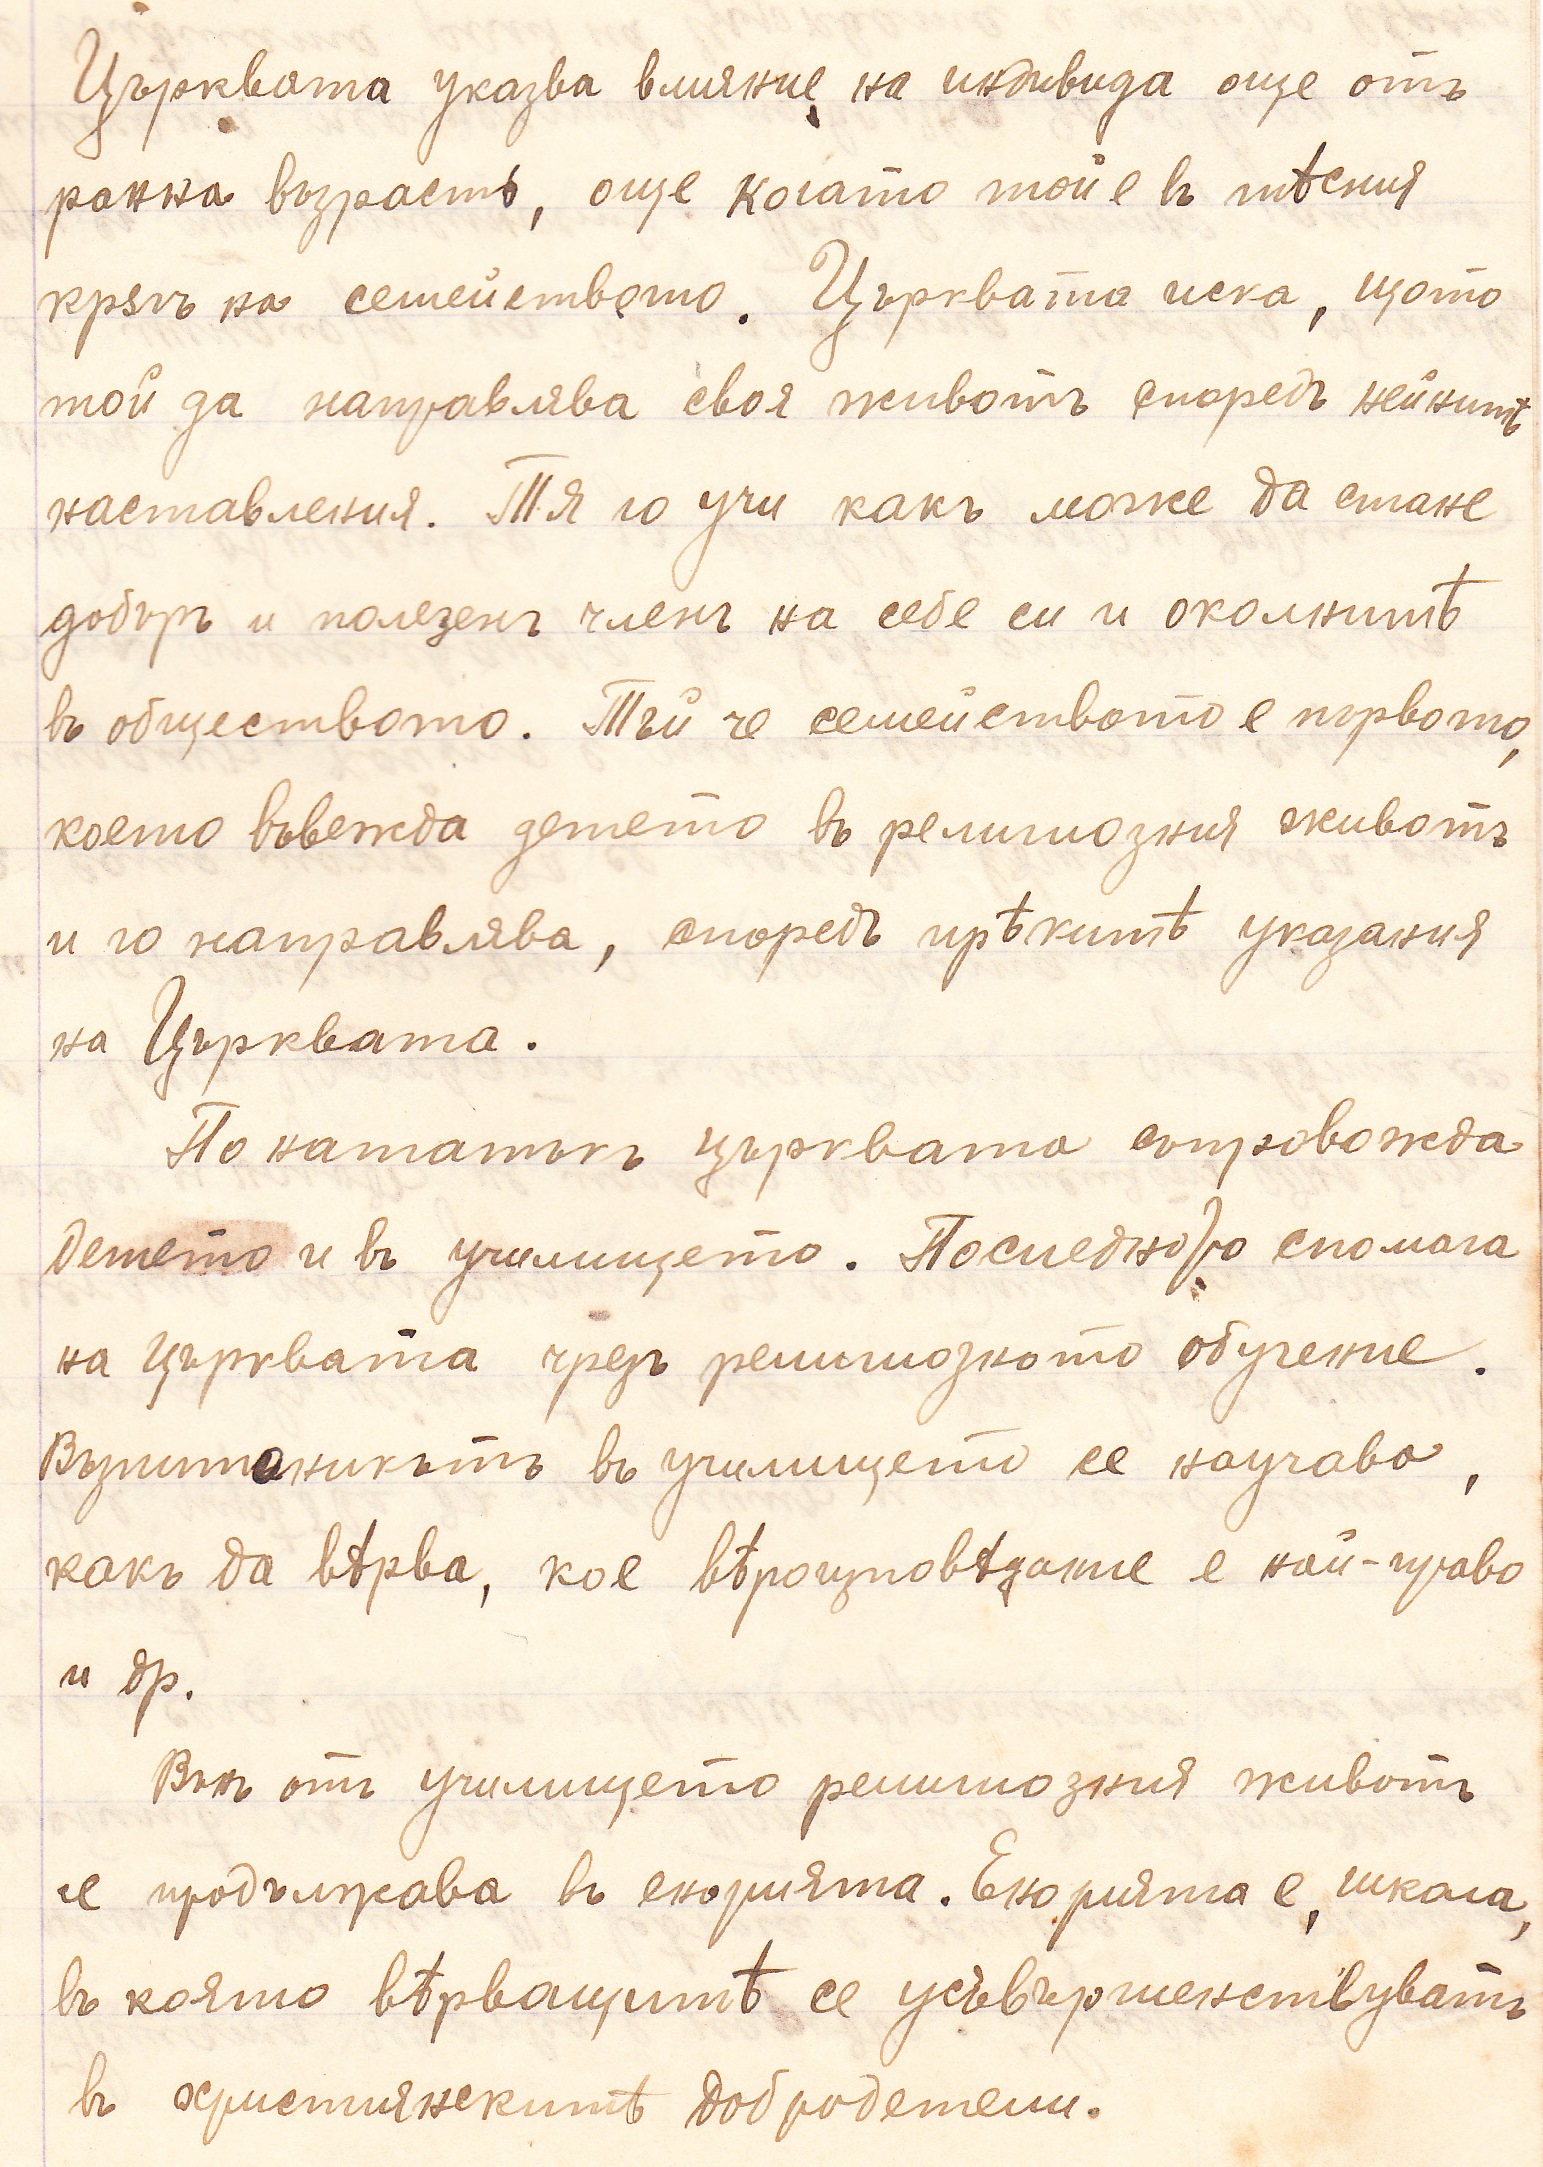 Църквата указва влияние на индивида още отъ
ранна възрасть, още когато той е въ тѣсния
кръгъ на семейството. Църквата иска, щото
той да направлява своя животъ споредъ нейнитѣ
наставления. Тя го учи какъ може да стане
добъръ и полезенъ членъ на себе си и околнитѣ
въ обществото. Тъй че семейството е първото,
което въвежда детето въ религиозния животъ
и го направлява, споредъ прѣкитѣ указания
на Църквата.
По нататъкъ църквата съпровожда
детето и въ училището. Последното спомага
на църквата чрезъ религиозното обучение.
Възпитаникътъ въ училището се научава,
какъ да вѣрва, кое вѣроизповѣдание е най-право
и др.
Вънъ отъ училището религиозния животъ
се продължава въ енорията. Енорията е, школа,
въ която вѣрващитѣ се усъвършенствуватъ
въ християнскитѣ добродетели.